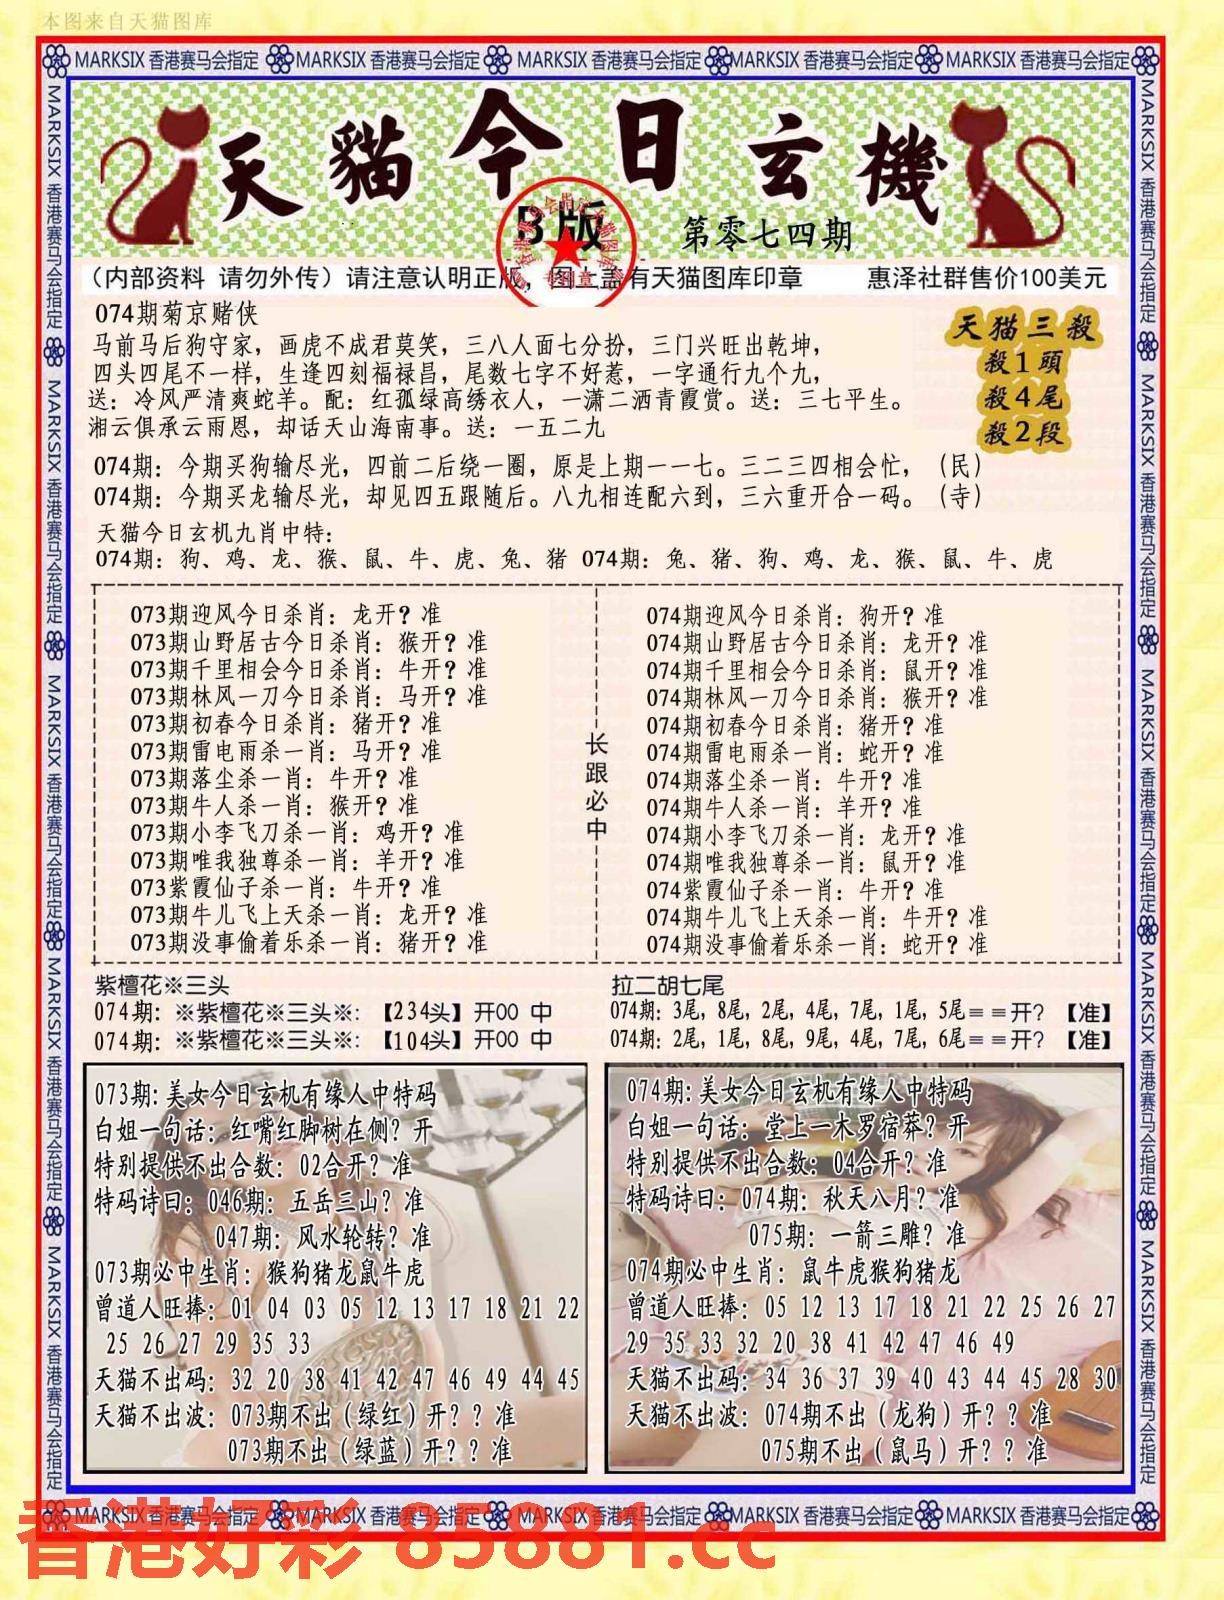 本图来自天猫图库
MARKSIX 香港赛马会指定 MARKSIX 香港赛马会指定 MARKSIX 香港赛马会指定 MARKSIX 香港赛马会指定 MARKSIX 香港赛马会指定
MARKSIX 香港赛马会指定 MARKSIX 香港赛马会指定 MARKSIX 香港赛马会指定 MARKSIX 香港赛马会指定 MARKSIX 香港赛马会指定
MARKSIX 香港赛马会指定 MARKSIX 香港赛马会指定 MARKSIX 香港赛马会指定 MARKSIX 香港赛马会指定 MARKSIX 香港赛马会指定
天貓今日玄機
B版
第零七四期
（内部资料 请勿外传）请注意认明正版，图上盖有天猫图库印章
惠泽社群售价100美元
074期菊京赌侠
马前马后狗守家，画虎不成君莫笑，三八人面七分扮，三门兴旺出乾坤，
四头四尾不一样，生逢四刻福禄昌，尾数七字不好惹，一字通行九个九，
送：冷风严清爽蛇羊。配：红孤绿高绣衣人，一潇二洒青霞赏。送：三七平生。
湘云俱承云雨恩，却话天山海南事。送：一五二九
天猫三殺
殺1頭
殺4尾
殺2段
074期：今期买狗输尽光，四前二后绕一圈，原是上期一一七。三二三四相会忙，（民）
074期：今期买龙输尽光，却见四五跟随后。八九相连配六到，三六重开合一码。（寺）
天猫今日玄机九肖中特：
074期：狗、鸡、龙、猴、鼠、牛、虎、兔、猪 074期：兔、猪、狗、鸡、龙、猴、鼠、牛、虎
073期迎风今日杀肖：龙开？准
073期山野居古今日杀肖：猴开？准
073期千里相会今日杀肖：牛开？准
073期林风一刀今日杀肖：马开？准
073期初春今日杀肖：猪开？准
073期雷电雨杀一肖：马开？准
073期落尘杀一肖：牛开？准
073期牛人杀一肖：猴开？准
073期小李飞刀杀一肖：鸡开？准
073期唯我独尊杀一肖：羊开？准
073紫霞仙子杀一肖：牛开？准
073期牛儿飞上天杀一肖：龙开？准
073期没事偷着乐杀一肖：猪开？准
长跟必中
074期迎风今日杀肖：狗开？准
074期山野居古今日杀肖：龙开？准
074期千里相会今日杀肖：鼠开？准
074期林风一刀今日杀肖：猴开？准
074期初春今日杀肖：猪开？准
074期雷电雨杀一肖：蛇开？准
074期落尘杀一肖：牛开？准
074期牛人杀一肖：羊开？准
074期小李飞刀杀一肖：龙开？准
074期唯我独尊杀一肖：鼠开？准
074紫霞仙子杀一肖：牛开？准
074期牛儿飞上天杀一肖：牛开？准
074期没事偷着乐杀一肖：蛇开？准
紫檀花※三头
074期：※紫檀花※三头※：【234头】开00 中
074期：※紫檀花※三头※：【104头】开00 中
拉二胡七尾
074期：3尾，8尾，2尾，4尾，7尾，1尾，5尾＝＝开？【准】
074期：2尾，1尾，8尾，9尾，4尾，7尾，6尾＝＝开？【准】
073期:美女今日玄机有缘人中特码
白姐一句话：红嘴红脚树在侧？开
特别提供不出合数：02合开？准
特码诗曰：046期：五岳三山？准
047期：风水轮转？准
073期必中生肖：猴狗猪龙鼠牛虎
曾道人旺捧：01 04 03 05 12 13 17 18 21 22
25 26 27 29 35 33
天猫不出码：32 20 38 41 42 47 46 49 44 45
天猫不出波：073期不出（绿红）开？？准
073期不出（绿蓝）开？？准
074期:美女今日玄机有缘人中特码
白姐一句话：堂上一木罗宿莽？开
特别提供不出合数：04合开？准
特码诗曰：074期：秋天八月？准
075期：一箭三雕？准
074期必中生肖：鼠牛虎猴狗猪龙
曾道人旺捧：05 12 13 17 18 21 22 25 26 27
29 35 33 32 20 38 41 42 47 46 49
天猫不出码：34 36 37 39 40 43 44 45 28 30
天猫不出波：074期不出（龙狗）开？？准
075期不出（鼠马）开？？准
MARKSIX 香港赛马会指定 MARKSIX 香港赛马会指定 MARKSIX 香港赛马会指定 MARKSIX 香港赛马会指定 MARKSIX 香港赛马会指定
香港好彩 85881.cc